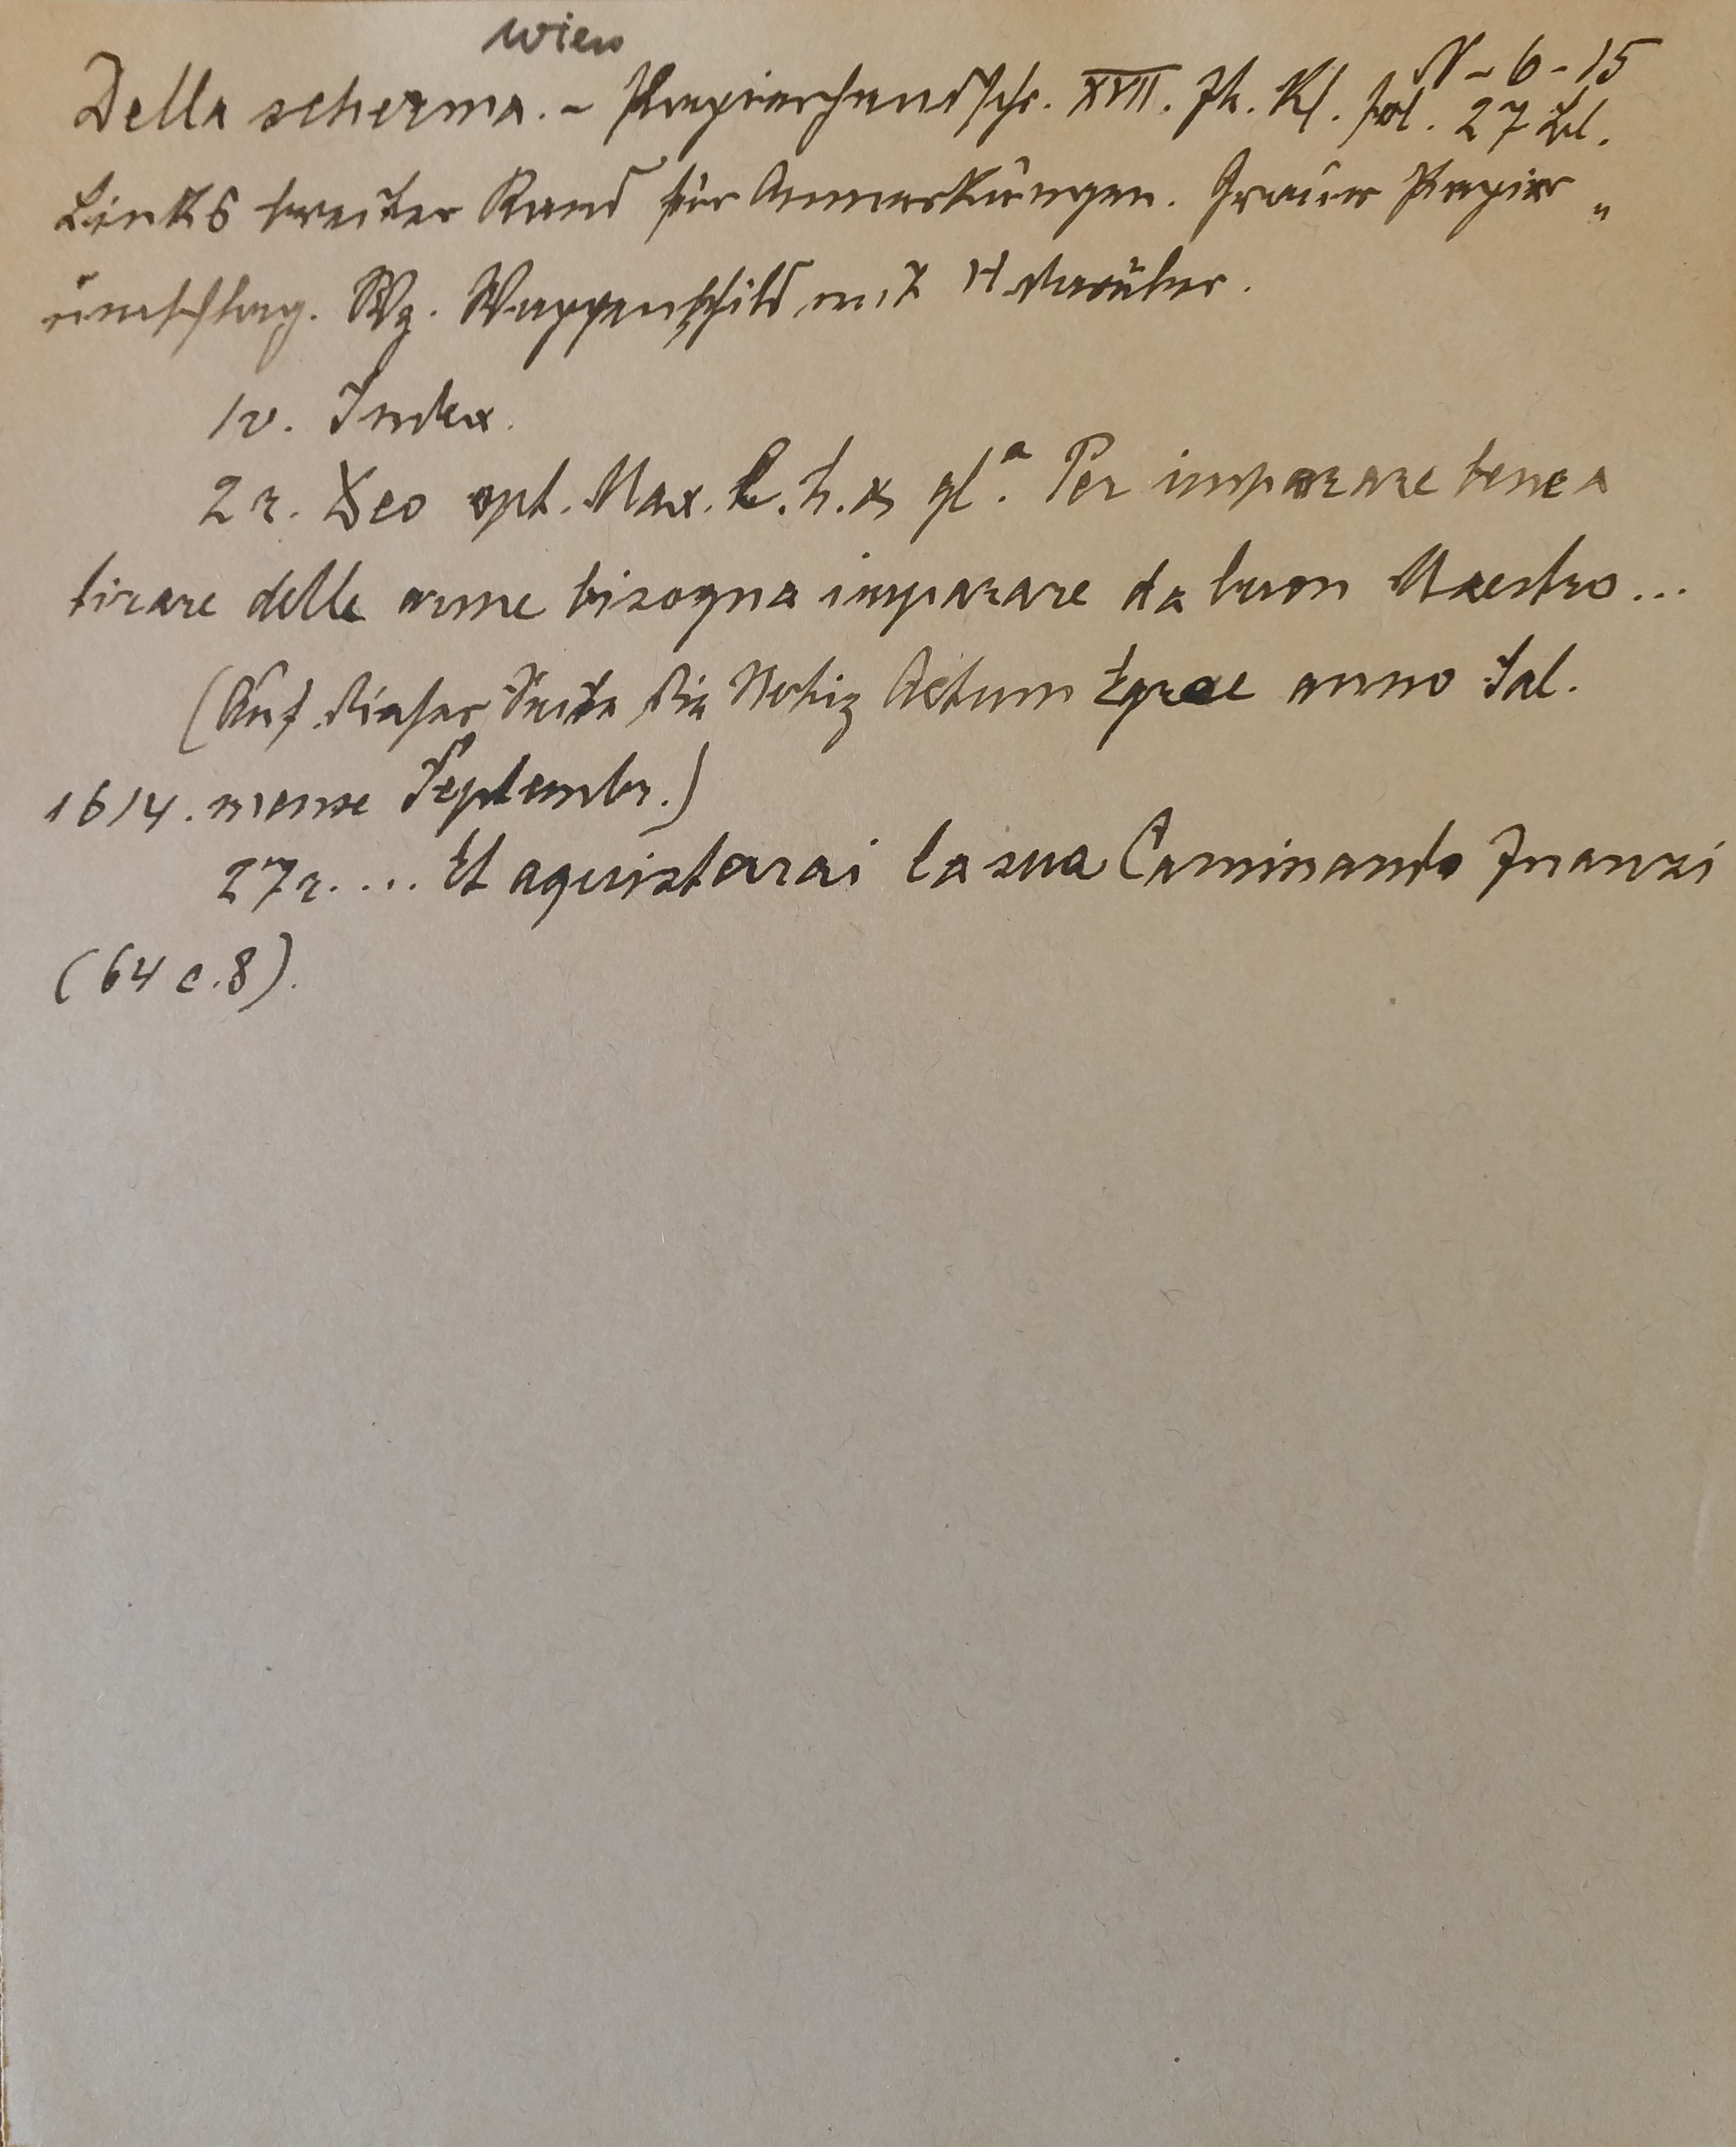 Wien
N-6-15
Della scherma. - Papierhandschr. XVII. Jh. Kl. fol. 27 Bl.
Links breiter Rand für Anmerkungen. Grauer Papier-
umschlag. Wz. Wappenschild mit H darüber.
1v. Index.
2r. Deo opt. Max. L. h. & gl.a Per imparare bene a
tirare delle arme bisogna imparare da buon Maestro...
(Auf dieser Seite die Notiz Actum Egrae anno Sal.
1614. mense Septembr.)
27r. ... Et aquistarai la sua Caminando Inanzi
(64 c. 8).